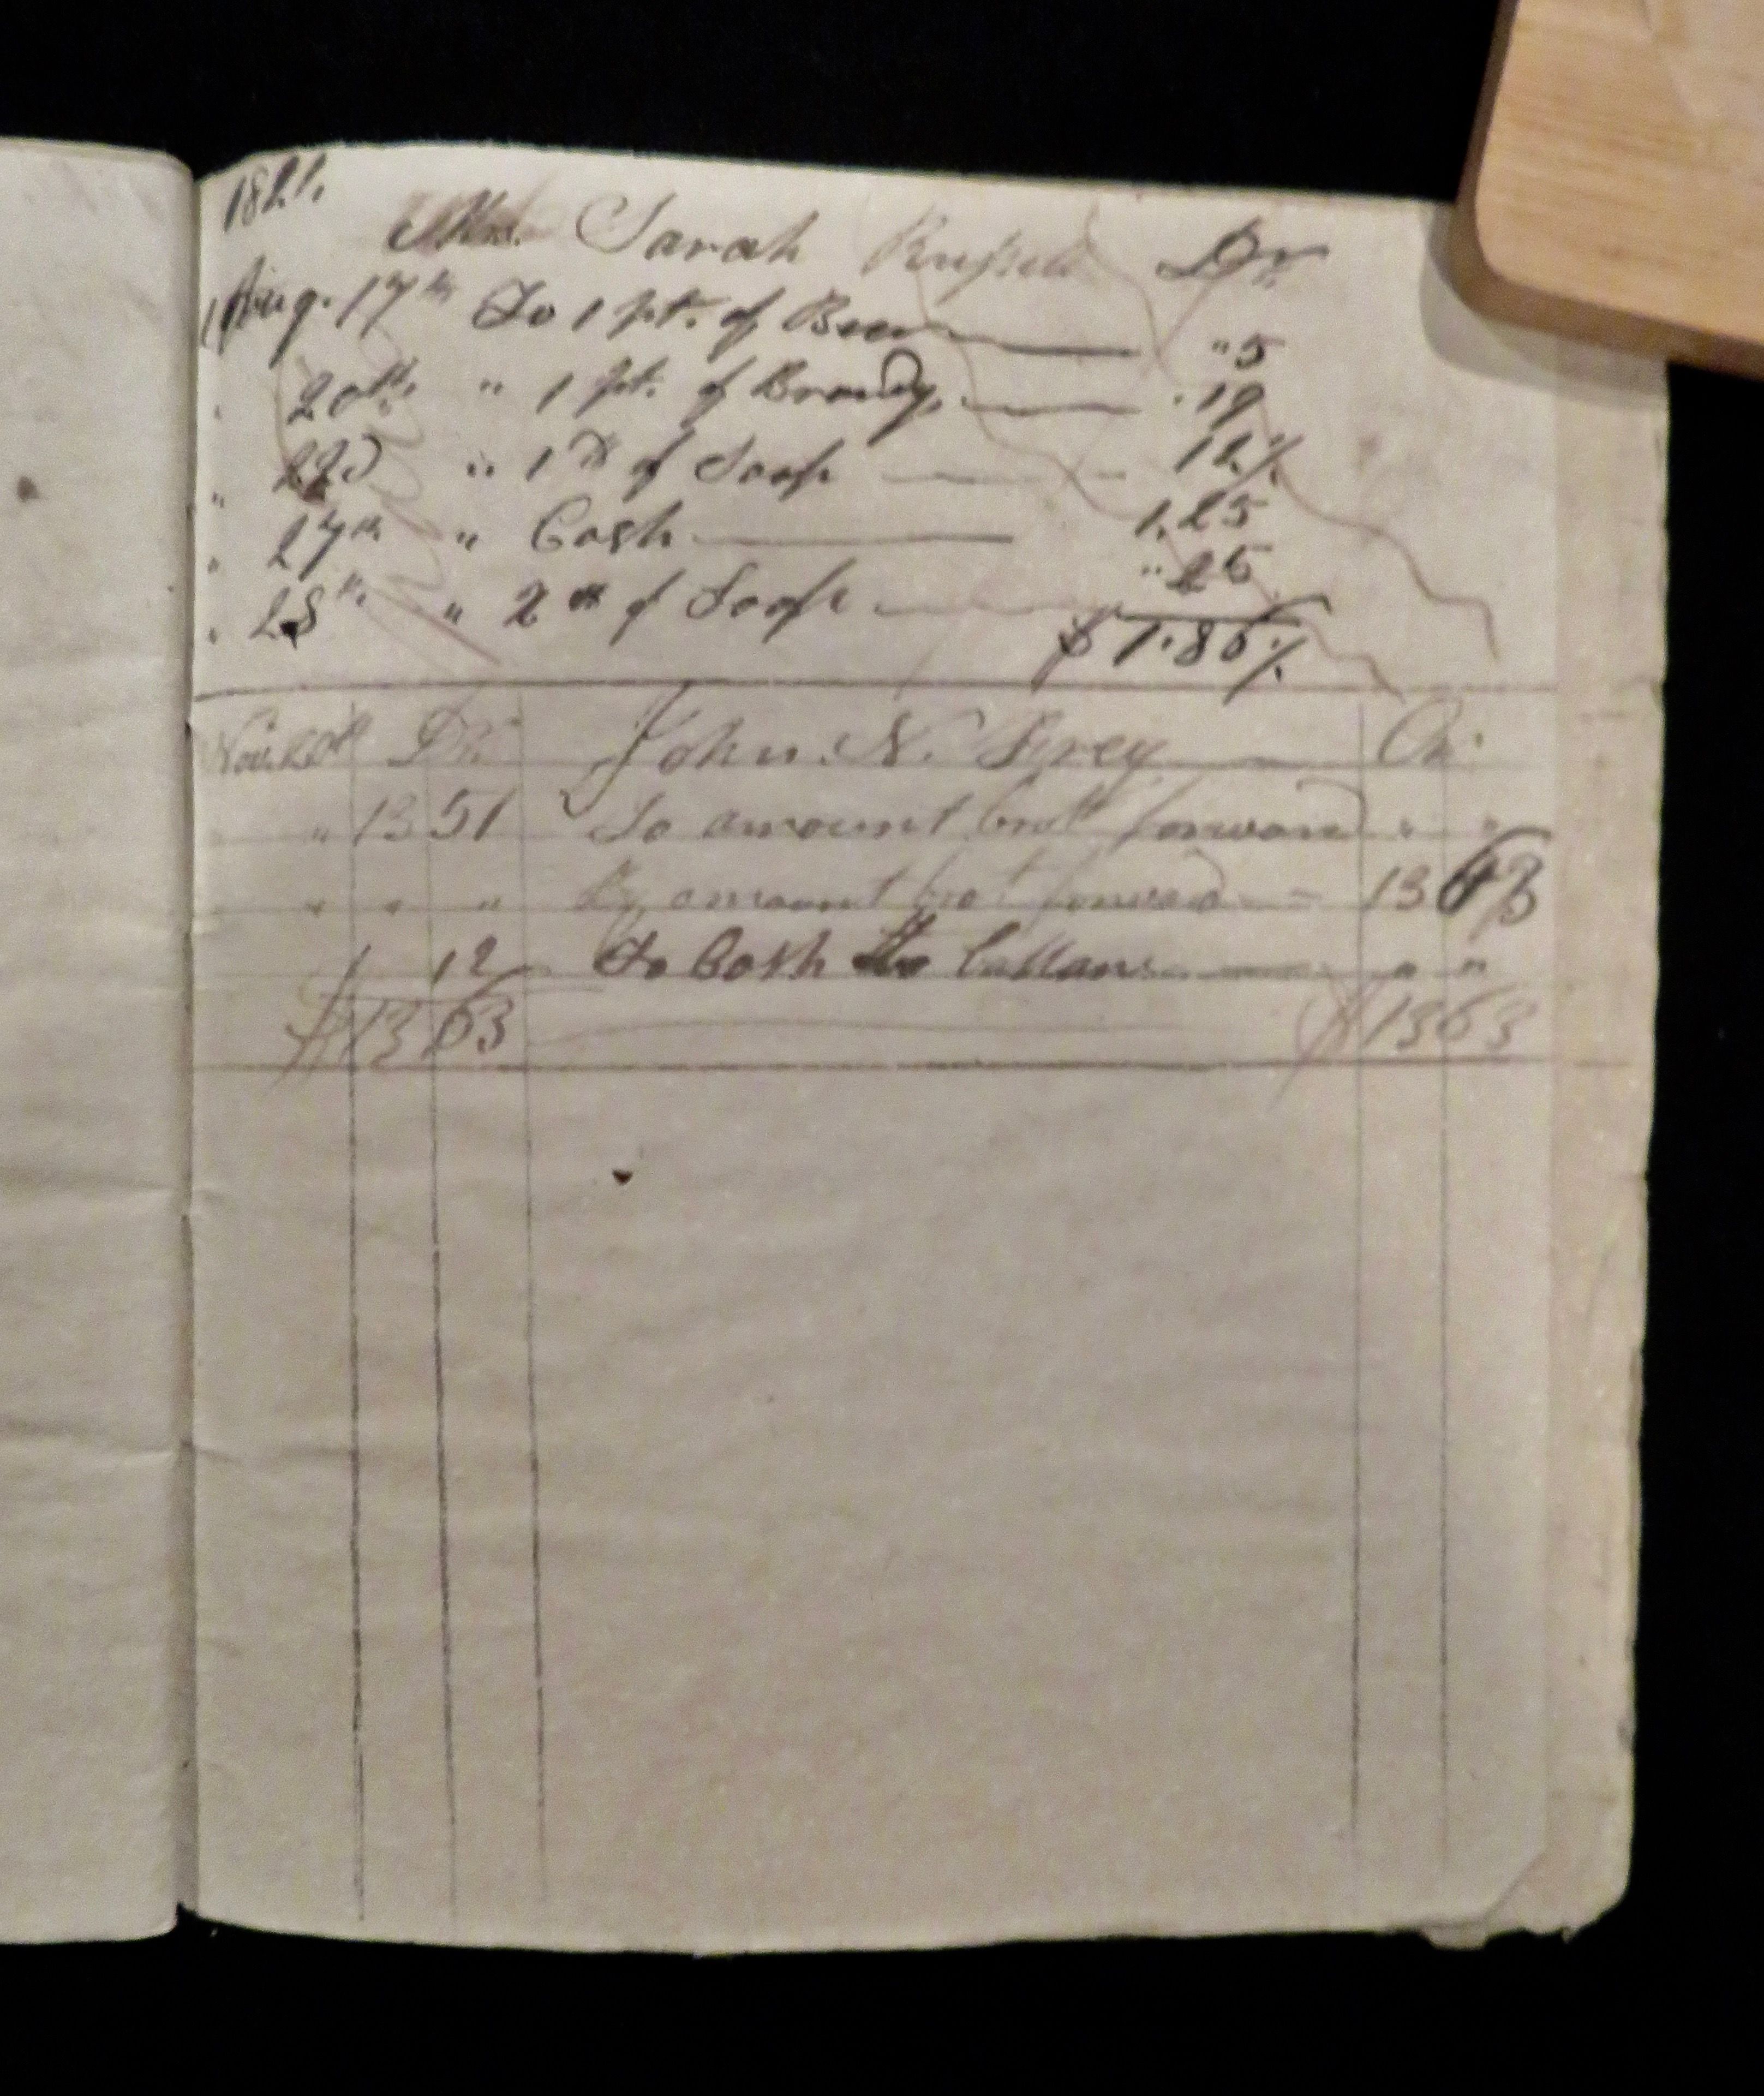 1821.
Mrs. Sarah Russell Dr
Aug. 17th To 1 pt. of Beer "5
" 20th " 1 pt. of Brandy, .19
" 22D " 1 lb of Soap 12½
" 27th " Cash 1.25
" 28th " 2 lb of Soap "25
$1.86½
Nov. 20th Dr. John N. Cr.
" 13 51 To amount brot forward " "
" " " By amount brot forward 13 63
1 12 To Cash to ballans " "
$13 63 $13 63